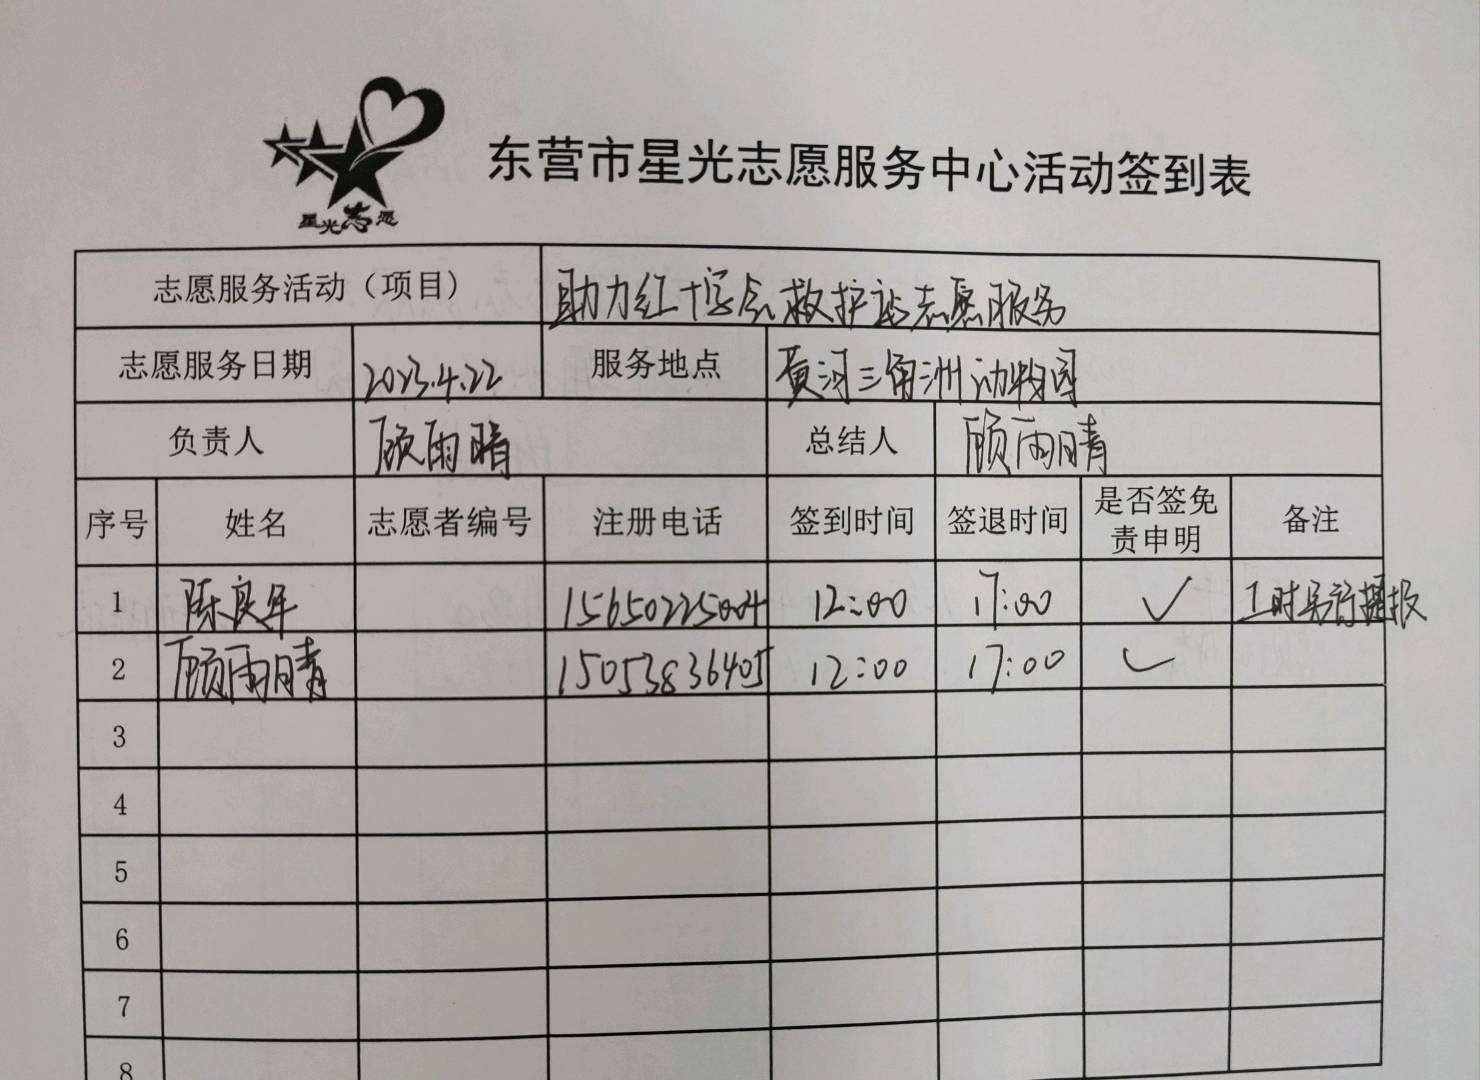 星光志愿
东营市星光志愿服务中心活动签到表
志愿服务活动（项目） 助力红十字会救护站志愿服务
志愿服务日期 2023.4.22 服务地点 黄河三角洲动物园
负责人 顾雨晴 总结人 顾雨晴
序号 姓名 志愿者编号 注册电话 签到时间 签退时间 是否签免责申明 备注
1 陈良年 15650225004 12:00 17:00 ✓ 工时另行播报
2 顾雨晴 15053836405 12:00 17:00 ✓
3
4
5
6
7
8